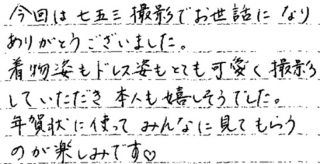 今回は七五三撮影でお世話になり
ありがとうございました。
着物姿もドレス姿もとても可愛く撮影
していただき本人も嬉しそうでした。
年賀状に使ってみんなに見てもらう
のが楽しみです♡